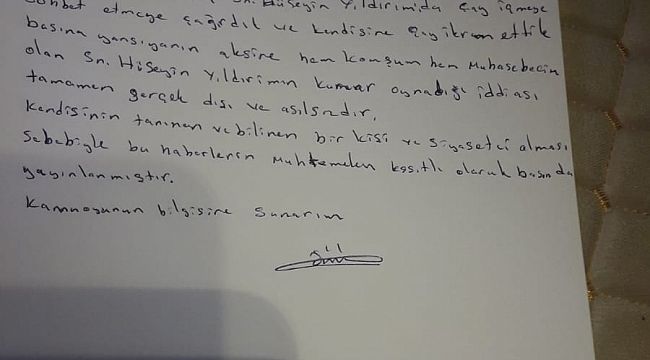 Sn. Hüseyin Yıldırımıda çay içmeye
sohbet etmeye çağırdıl ve kendisine çay ikram ettik
basına yansıyanın aksine hem komşum hem Muhasebecim
olan Sn. Hüseyin Yıldırımın kumar oynadığı iddiası
tamamen gerçek dışı ve asılsızdır.
Kendisinin tanınan ve bilinen bir kişi ve siyasetci olması
Sebebiyle bu haberlerin Muhtemelen kasıtlı olarak basında
yayınlanmıştır.
Kamuoyunun bilgisine sunarım